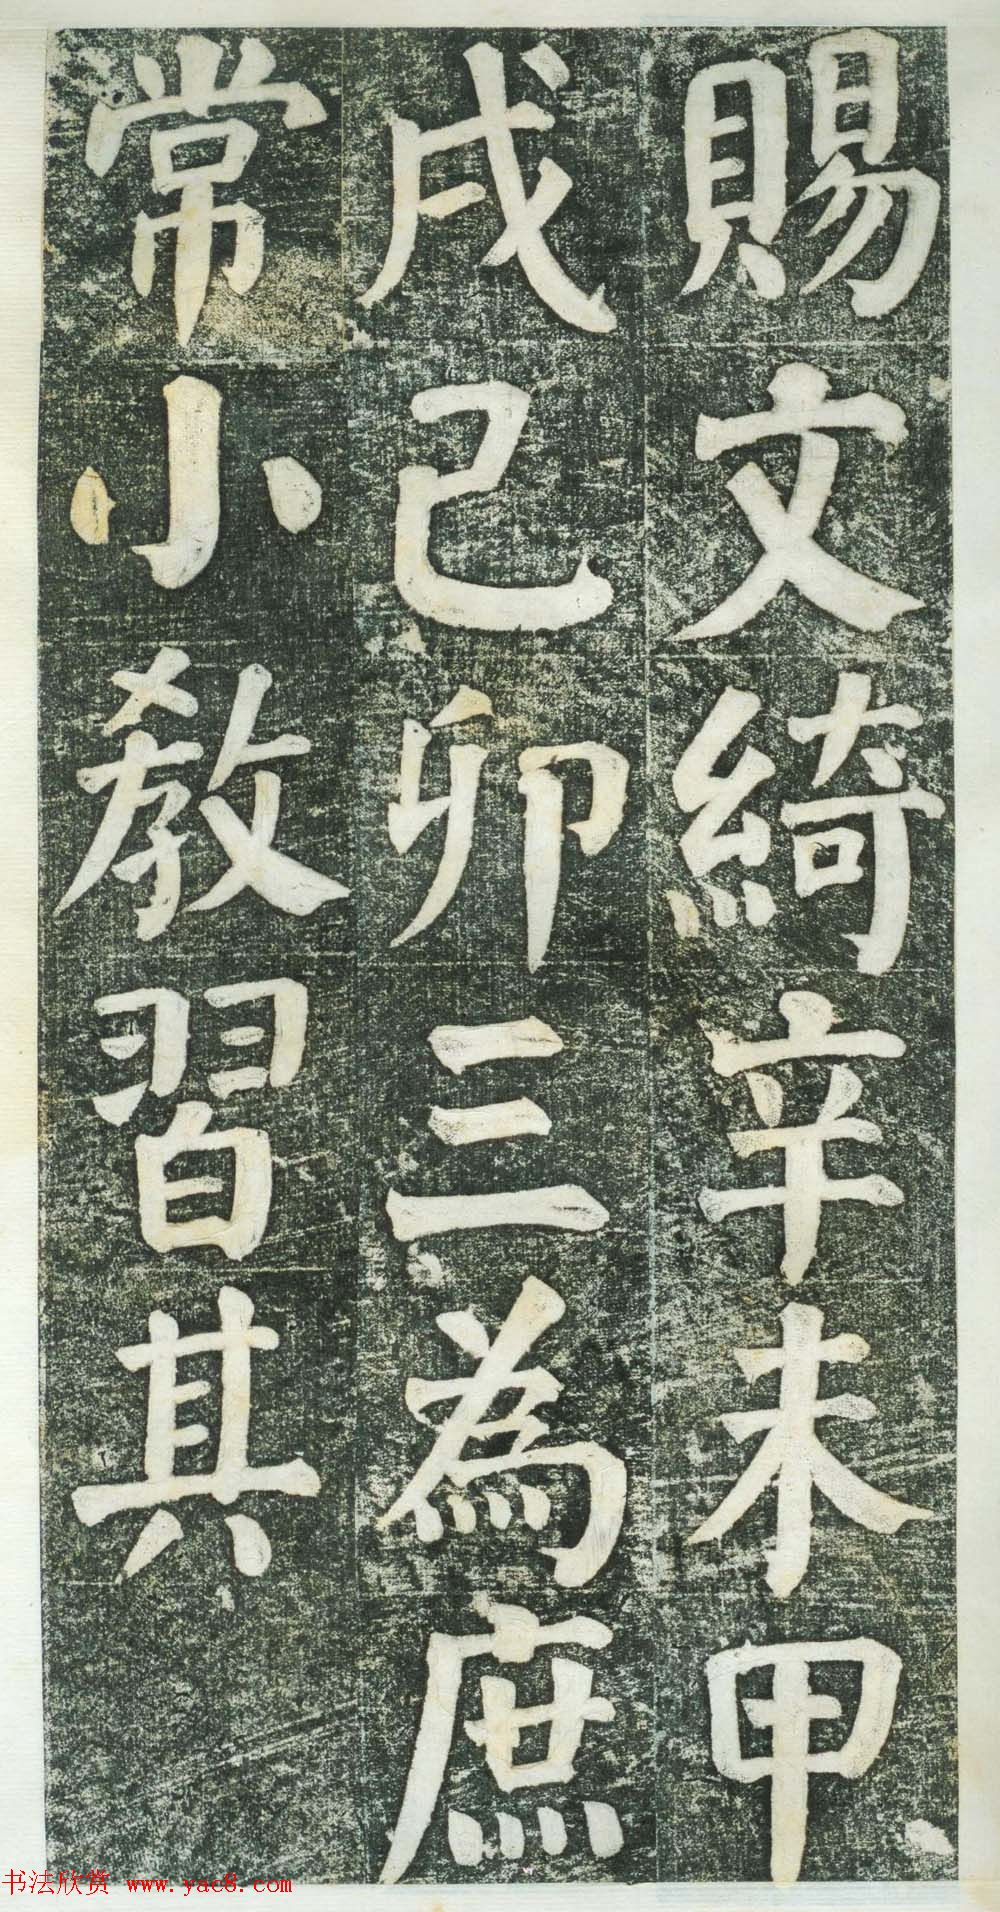 賜文綺辛未甲
戌己卯三為庶
常小教習其
书法欣赏 www.yac8.com